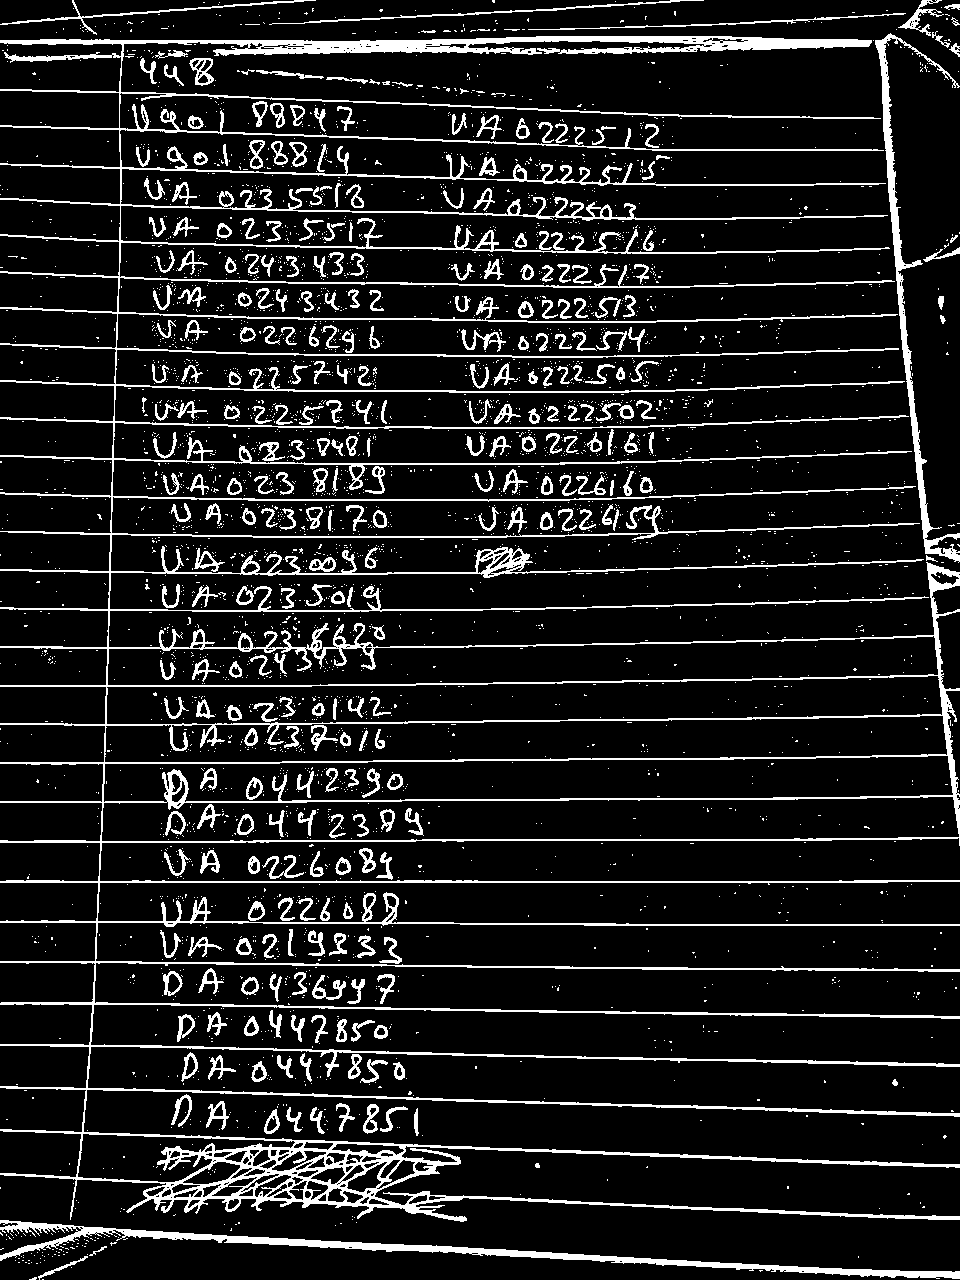 448
U901 88847
U901 88814
UA 0235518
UA 0235517
UA 0243433
UA 0243432
UA 0226296
UA 0225742
UA 0225741
UA 0238481
UA 0238189
UA 0238170
UA 0230096
UA 0235019
UA 0238620
UA 0243459
UA 0230142
UA 0237016
DA 0442390
DA 0442389
UA 0226089
UA 0226088
UA 0219333
DA 0436997
DA 0447850
DA 0447850
DA 0447851
UA 0222512
UA 0222515
UA 0222503
UA 0222516
UA 0222517
UA 0222513
UA 0222514
UA 0222505
UA 0222502
UA 0226161
UA 0226160
UA 0226159